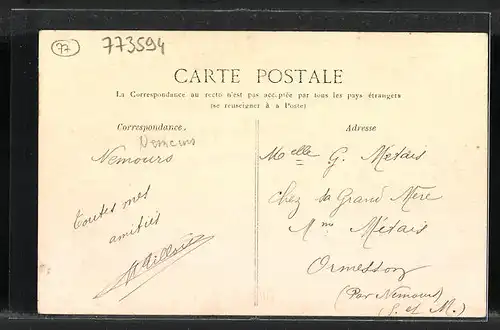 77
773594
CARTE POSTALE
La Correspondance au recto n'est pas acceptée par tous les pays étrangers
(se renseigner à a Poste)
Correspondance.
Adresse
Nemours
Nemours
toutes mes
amitiés
Melle G. Metais
Chez sa Grand Mère
Mme Métais
Ormesson
(Par Nemours)
(S. et M.)